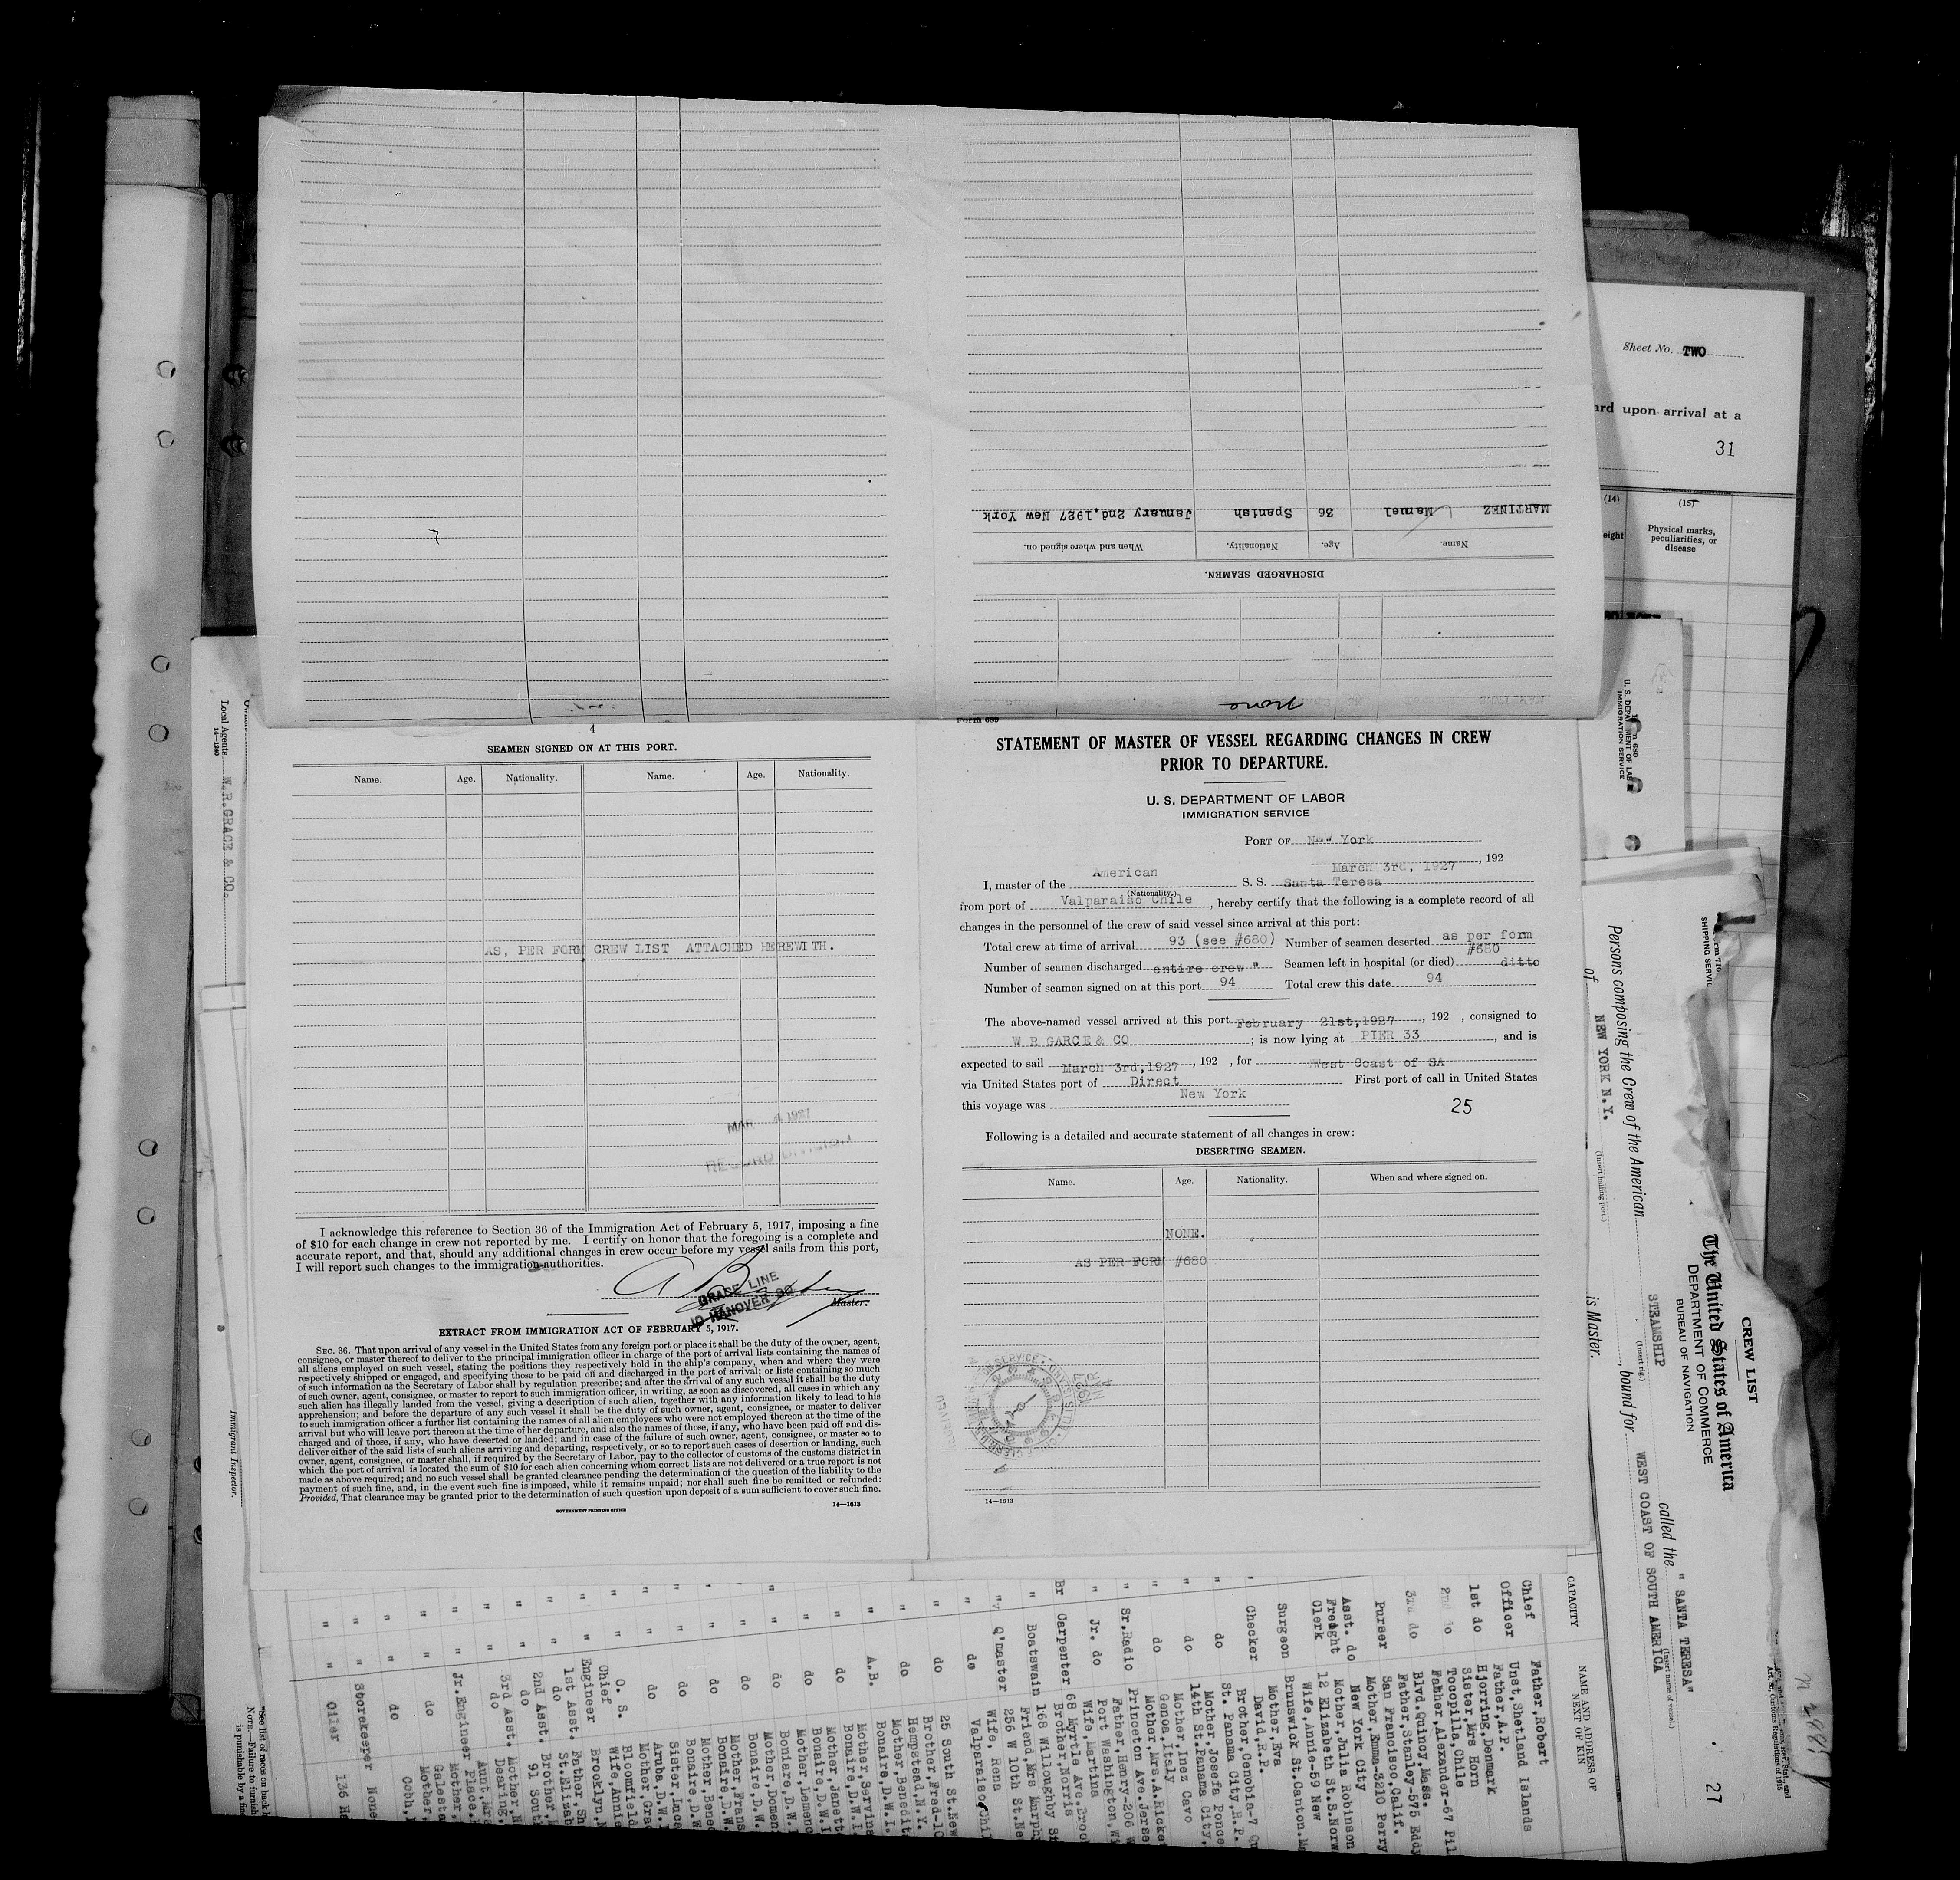 Sheet No. TWO
ard upon arrival at a
31
(14)
(15)
eight
Physical marks,
peculiarities, or
disease
MARTINEZ Manuel 36 Spanish January 2nd.1927 New York
Name. Age. Nationality. When and where signed on.
DISCHARGED SEAMEN.
None
4
SEAMEN SIGNED ON AT THIS PORT.
Name. Age. Nationality. Name. Age. Nationality.
AS, PER FORM CREW LIST ATTACHED HEREWITH.
MAR 4 1927
RECORD DIVISION
I acknowledge this reference to Section 36 of the Immigration Act of February 5, 1917, imposing a fine
of $10 for each change in crew not reported by me. I certify on honor that the foregoing is a complete and
accurate report, and that, should any additional changes in crew occur before my vessel sails from this port,
I will report such changes to the immigration authorities.
GRACE LINE
10 HANOVER SQ
Master.
EXTRACT FROM IMMIGRATION ACT OF FEBRUARY 5, 1917.
SEC. 36. That upon arrival of any vessel in the United States from any foreign port or place it shall be the duty of the owner, agent,
consignee, or master thereof to deliver to the principal immigration officer in charge of the port of arrival lists containing the names of
all aliens employed on such vessel, stating the positions they respectively hold in the ship's company, when and where they were
respectively shipped or engaged, and specifying those to be paid off and discharged in the port of arrival; or lists containing so much
of such information as the Secretary of Labor shall by regulation prescribe; and after the arrival of any such vessel it shall be the duty
of such owner, agent, consignee, or master to report to such immigration officer, in writing, as soon as discovered, all cases in which any
such alien has illegally landed from the vessel, giving a description of such alien, together with any information likely to lead to his
apprehension; and before the departure of any such vessel it shall be the duty of such owner, agent, consignee, or master to deliver
to such immigration officer a further list containing the names of all alien employees who were not employed thereon at the time of the
arrival but who will leave port thereon at the time of her departure, and also the names of those, if any, who have been paid off and dis-
charged and of those, if any, who have deserted or landed; and in case of the failure of such owner, agent, consignee, or master so to
deliver either of the said lists of such aliens arriving and departing, respectively, or so to report such cases of desertion or landing, such
owner, agent, consignee, or master shall, if required by the Secretary of Labor, pay to the collector of customs of the customs district in
which the port of arrival is located the sum of $10 for each alien concerning whom correct lists are not delivered or a true report is not
made as above required; and no such vessel shall be granted clearance pending the determination of the question of the liability to the
payment of such fine, and, in the event such fine is imposed, while it remains unpaid; nor shall such fine be remitted or refunded:
Provided, That clearance may be granted prior to the determination of such question upon deposit of a sum sufficient to cover such fine.
GOVERNMENT PRINTING OFFICE
14—1613
Form 689
STATEMENT OF MASTER OF VESSEL REGARDING CHANGES IN CREW
PRIOR TO DEPARTURE.
U. S. DEPARTMENT OF LABOR
IMMIGRATION SERVICE
PORT OF New York
March 3rd, 1927, 192
I, master of the American S. S. Santa Teresa
(Nationality.)
from port of Valparaiso Chile, hereby certify that the following is a complete record of all
changes in the personnel of the crew of said vessel since arrival at this port:
Total crew at time of arrival 93 (see #680) Number of seamen deserted as per form
#680
Number of seamen discharged entire crew " Seamen left in hospital (or died) ditto
Number of seamen signed on at this port 94 Total crew this date 94
The above-named vessel arrived at this port February 21st,1927, 192 , consigned to
W R GARCE & CO ; is now lying at PIER 33, and is
expected to sail March 3rd,1927, 192 , for West Coast of SA
via United States port of Direct First port of call in United States
this voyage was New York
25
Following is a detailed and accurate statement of all changes in crew:
DESERTING SEAMEN.
Name. Age. Nationality. When and where signed on.
NONE.
AS PER FORM #680
14—1613
Local Agents W.R.GRACE & CO.
14—1240
Immigrant Inspector.
U. S. DEPARTMENT OF LAB
IMMIGRATION SERVICE
SHIPPING SERVIC
CREW LIST
The United States of America
DEPARTMENT OF COMMERCE
BUREAU OF NAVIGATION
called the " SANTA TERESA"
(Insert name of vessel.)
STEAMSHIP
(Insert rig.)
Persons composing the Crew of the American
of NEW YORK N.Y. , bound for WEST COAST OF SOUTH AMERICA
(Insert hailing port.)
is Master.
27
CAPACITY
NAME AND ADDRESS OF
NEXT OF KIN
Chief
Officer
Father, Robert
Unst, Shetland Islands
1st do
Father, A.P.
Hjorring, Denmark
2nd do
Sister, Mrs Horn
Tocopilla, Chile
3rd do
Father, Alexander-67 Pil
Blvd. Quincy, Mass.
Purser
Father, Stanley-575 Eddy
San Francisco, Calif.
Asst. do
Mother, Emma-3210 Perry
New York City
Freight
Clerk
Mother, Julia Robinson
12 Elizabeth St.S.Norw
Surgeon
Wife, Annie-59 New
Brunswick St.Canton.Ma
Checker
Mother, Eva
David, R.P.
do
Brother, Cenobia-7
St. Panama City.R.P.
do
Mother, Josefa Ponce
14th St.Panama City.
do
Mother, Inez Cavo
Genoa, Italy
Sr.Radio
Mother, Mrs.A.Ricke
Princeton Ave.Jerse
Jr. do
Father, Henry-206 W
Port Washington, Wi
Carpenter
Wife, Martina
68 Myrtle Ave.Broo
Boatswain
Brother, Norris
168 Willoughby St
Q'master
Friend, Mrs Murphy
256 W 10th St.Ne
do
Wife, Rena
Valparaiso, Chil
do
25 South St.New
do
Brother, Fred-10
Hempstead, N.Y.
A.B.
Mother, Benedit
Bonaire, D.W.I.
do
Mother, Servina
Bonaire, D.W.I.
do
Mother, Janett
Bonaire, D.W.I
do
Mother, Lemenc
Boniare, D.W.I
do
Mother, Domen
Bonaire, D.W.
do
Mother, Frans
Bonaire, D.W.
do
Mother, Bene
Bonaire, D.W
do
Sister, Luca
Aruba, D.W.I
O. S.
Mother, Grac
Bloomfield
Chief
Engineer
Wife, Annie
Brooklyn, N
1st Asst.
do
Father, Sh
St.Elizab
2nd Asst.
do
Brother, L
91 South
3rd Asst.
do
Mother, N
Dearing,
Jr.Engineer
Aunt, Mrs
Place.
do
Mother,
Galeston
do
Mother,
Cobh, I
Storekeeper None
Oiler 136 Ha
*See list of races on back
NOTE.—Failure to furnish
is punishable by a fine